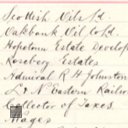 Scottish Oils Ld
Oakbank Oil Co Ld
Hopetoun Estate Develop
Rosebery Estates
Admiral R H Johnston
L & N Eastern Railw
Collector of Taxes
Wages